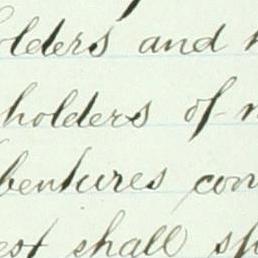 olders and
holders of
bentures con
est shall sp